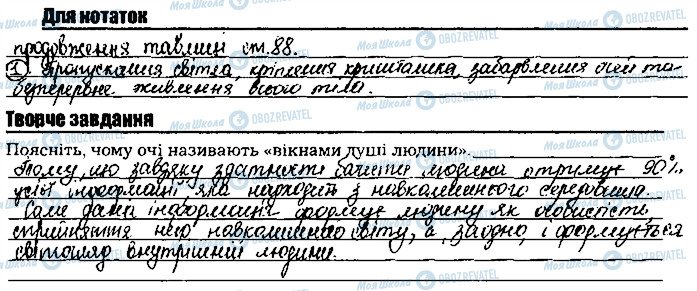 Для нотаток
продовження таблиці ст. 88.
① Пропускання світла, кріплення кришталика, забарвлення очей та
безперервне живлення всього тіла.
Творче завдання
Поясніть, чому очі називають «вікнами душі людини».
Тому, що завдяку здатності бачити людина отримує 90%
усієї інформації яка надходить з навколишнього середовища.
Саме дана інформація формує людину як особистість,
сприйняття нею навколишнього світу, а, заодно, і формується
світогляд внутрішній людини.